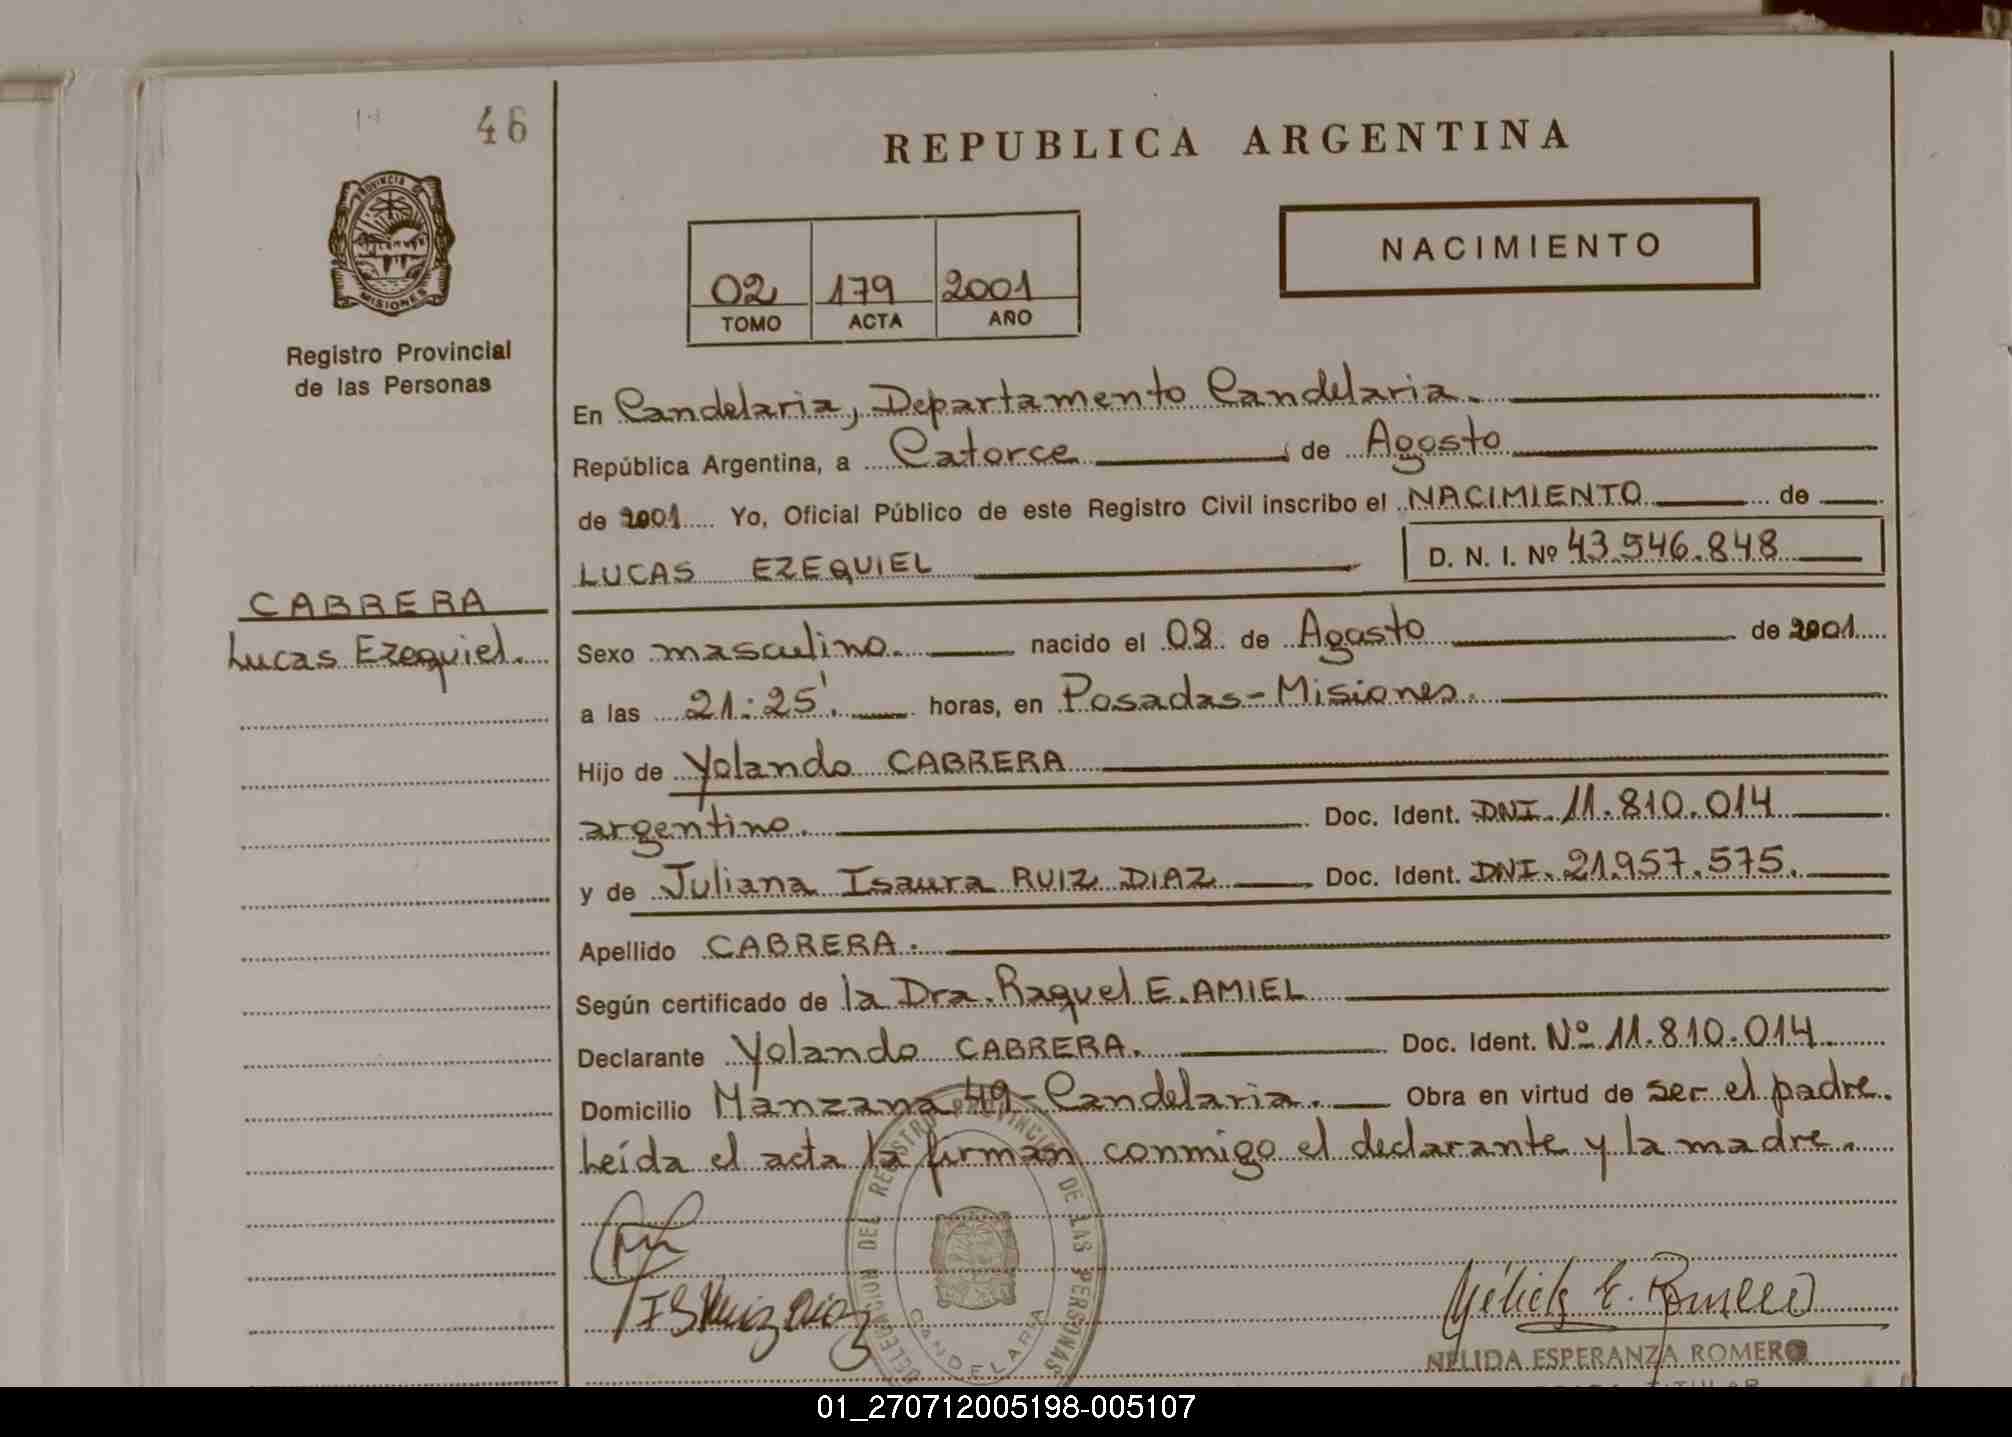 46
REPUBLICA ARGENTINA
PROVINCIA DE
MISIONES
Registro Provincial
de las Personas
02 179 2001
TOMO ACTA AÑO
NACIMIENTO
En Candelaria, Departamento Candelaria.
República Argentina, a Catorce de Agosto
de 2001 Yo, Oficial Público de este Registro Civil inscribo el NACIMIENTO de
LUCAS EZEQUIEL D. N. I. Nº 43.546.848
CABRERA
Lucas Ezequiel.
Sexo masculino. nacido el 08 de Agosto de 2001
a las 21:25'. horas, en Posadas-Misiones.
Hijo de Yolando CABRERA
argentino. Doc. Ident. DNI. 11.810.014
y de Juliana Isaura RUIZ DIAZ Doc. Ident. DNI. 21.957.575.
Apellido CABRERA.
Según certificado de la Dra. Raquel E. AMIEL
Declarante Yolando CABRERA. Doc. Ident. Nº 11.810.014
Domicilio Manzana 49-Candelaria. Obra en virtud de ser el padre.
Leída el acta la firman conmigo el declarante y la madre.
DELEGACION DEL REGISTRO PROVINCIAL DE LAS PERSONAS
CANDELARIA
I S Ruiz Diaz
Nélida E. Romero
NELIDA ESPERANZA ROMERO
TITULAR
01_270712005198-005107